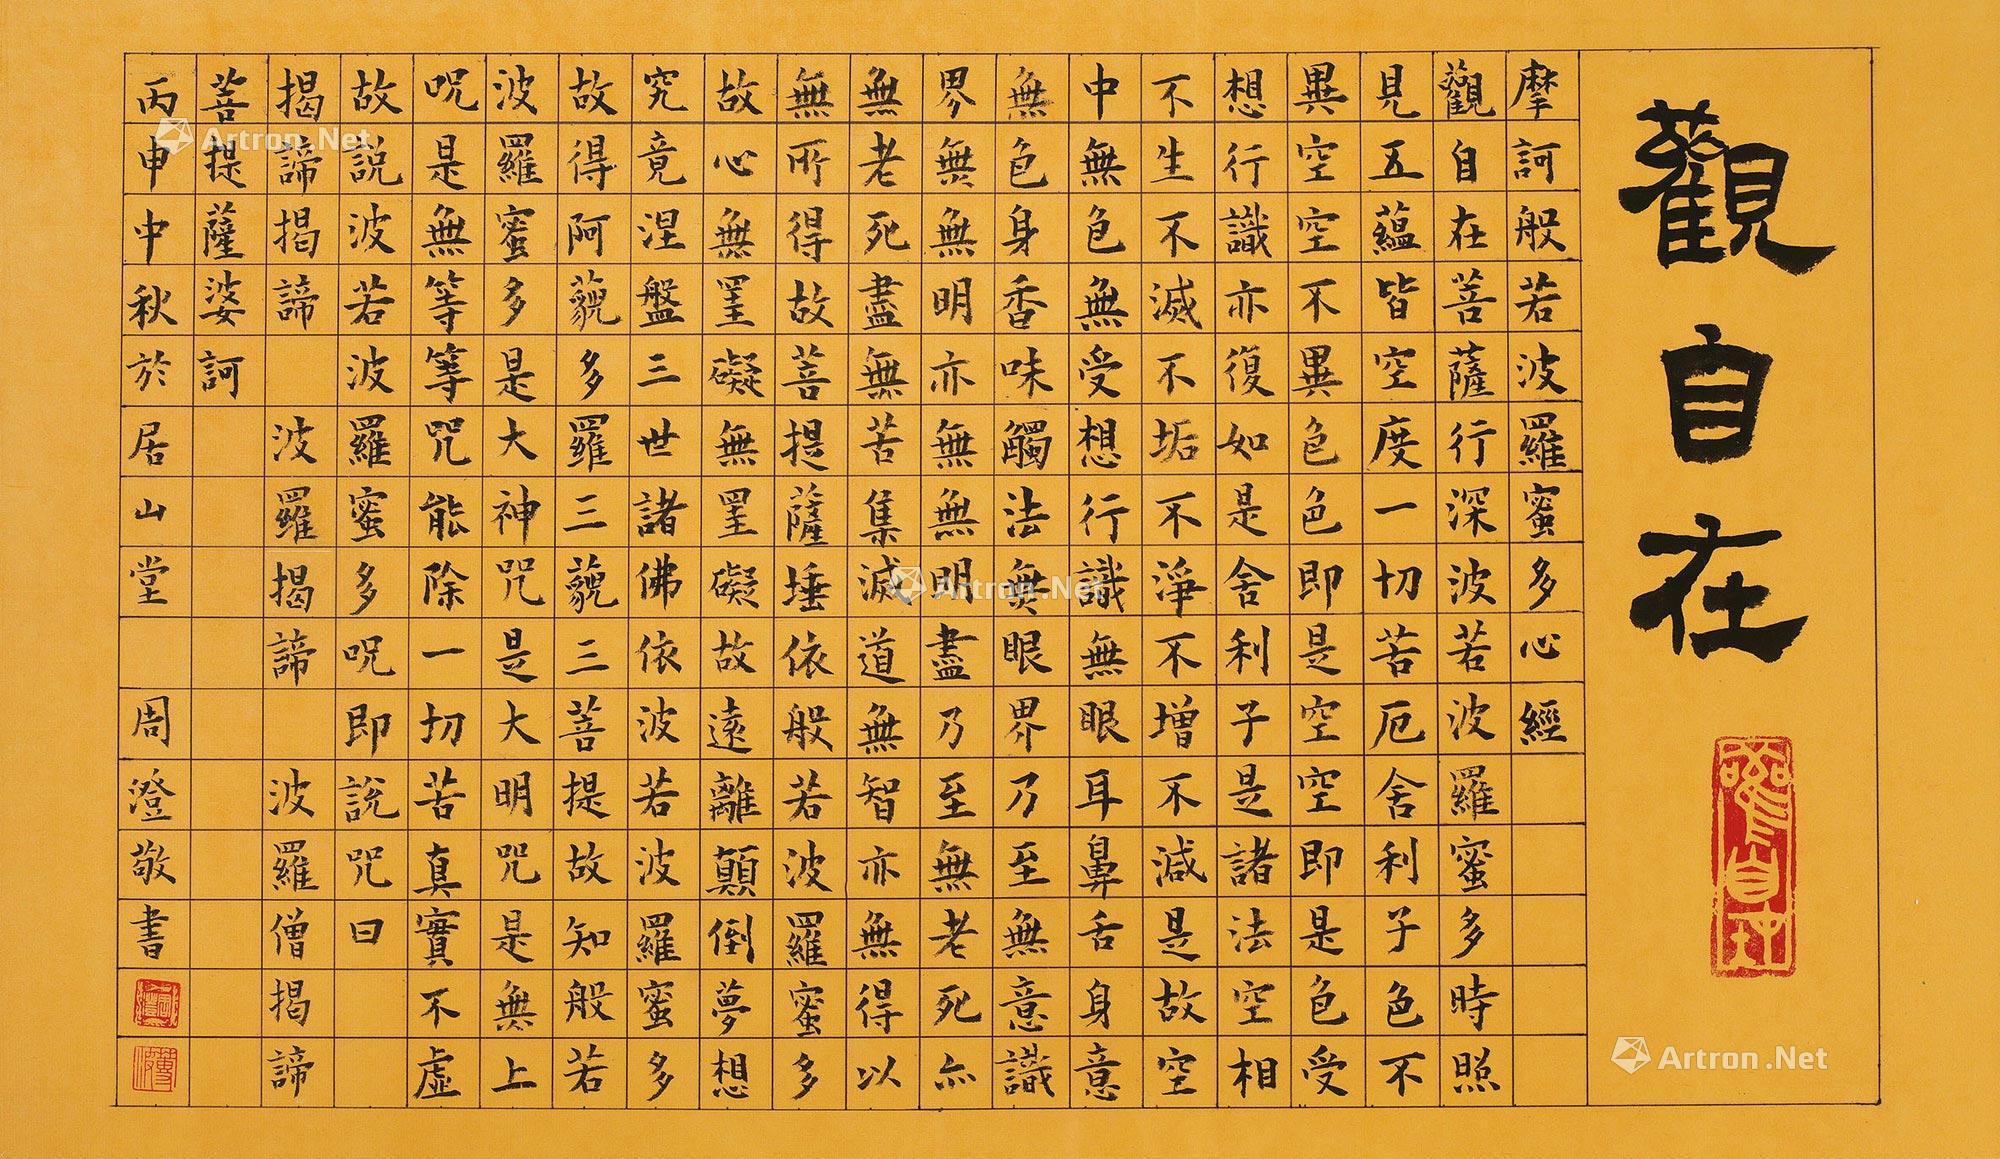 觀自在
觀自在
摩訶般若波羅蜜多心經
觀自在菩薩行深波若波羅蜜多時照
見五蘊皆空度一切苦厄舍利子色不
異空空不異色色即是空空即是色受
想行識亦復如是舍利子是諸法空相
不生不滅不垢不淨不增不減是故空
中無色無受想行識無眼耳鼻舌身意
無色身香味觸法無眼界乃至無意識
界無無明亦無無明盡乃至無老死亦
無老死盡無苦集滅道無智亦無得以
無所得故菩提薩埵依般若波羅蜜多
故心無罣礙無罣礙故遠離顛倒夢想
究竟涅盤三世諸佛依波若波羅蜜多
故得阿藐多羅三藐三菩提故知般若
波羅蜜多是大神咒是大明咒是無上
呪是無等等咒能除一切苦真實不虛
故說波若波羅蜜多呪即說咒曰
揭諦揭諦 波羅揭諦 波羅僧揭諦
菩提薩婆訶
丙申中秋於居山堂 周澄敬書
Artron.Net
Artron.Net
Artron.Net